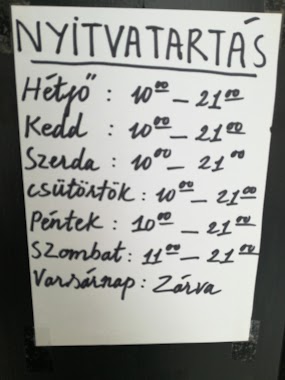 NYITVATARTÁS
Hétfő : 10⁰⁰ – 21⁰⁰
Kedd : 10⁰⁰ – 21⁰⁰
Szerda : 10⁰⁰ – 21⁰⁰
CSütörtök : 10⁰⁰ – 21⁰⁰
Péntek : 10⁰⁰ – 21⁰⁰
SZombat : 11⁰⁰ – 21⁰⁰
Varsárnap : Zárva